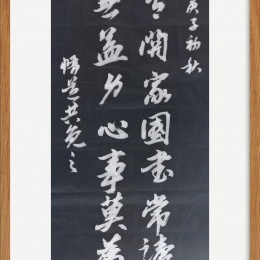 庚子初秋
有關家國書常讀
無益身心事莫為
共勉之